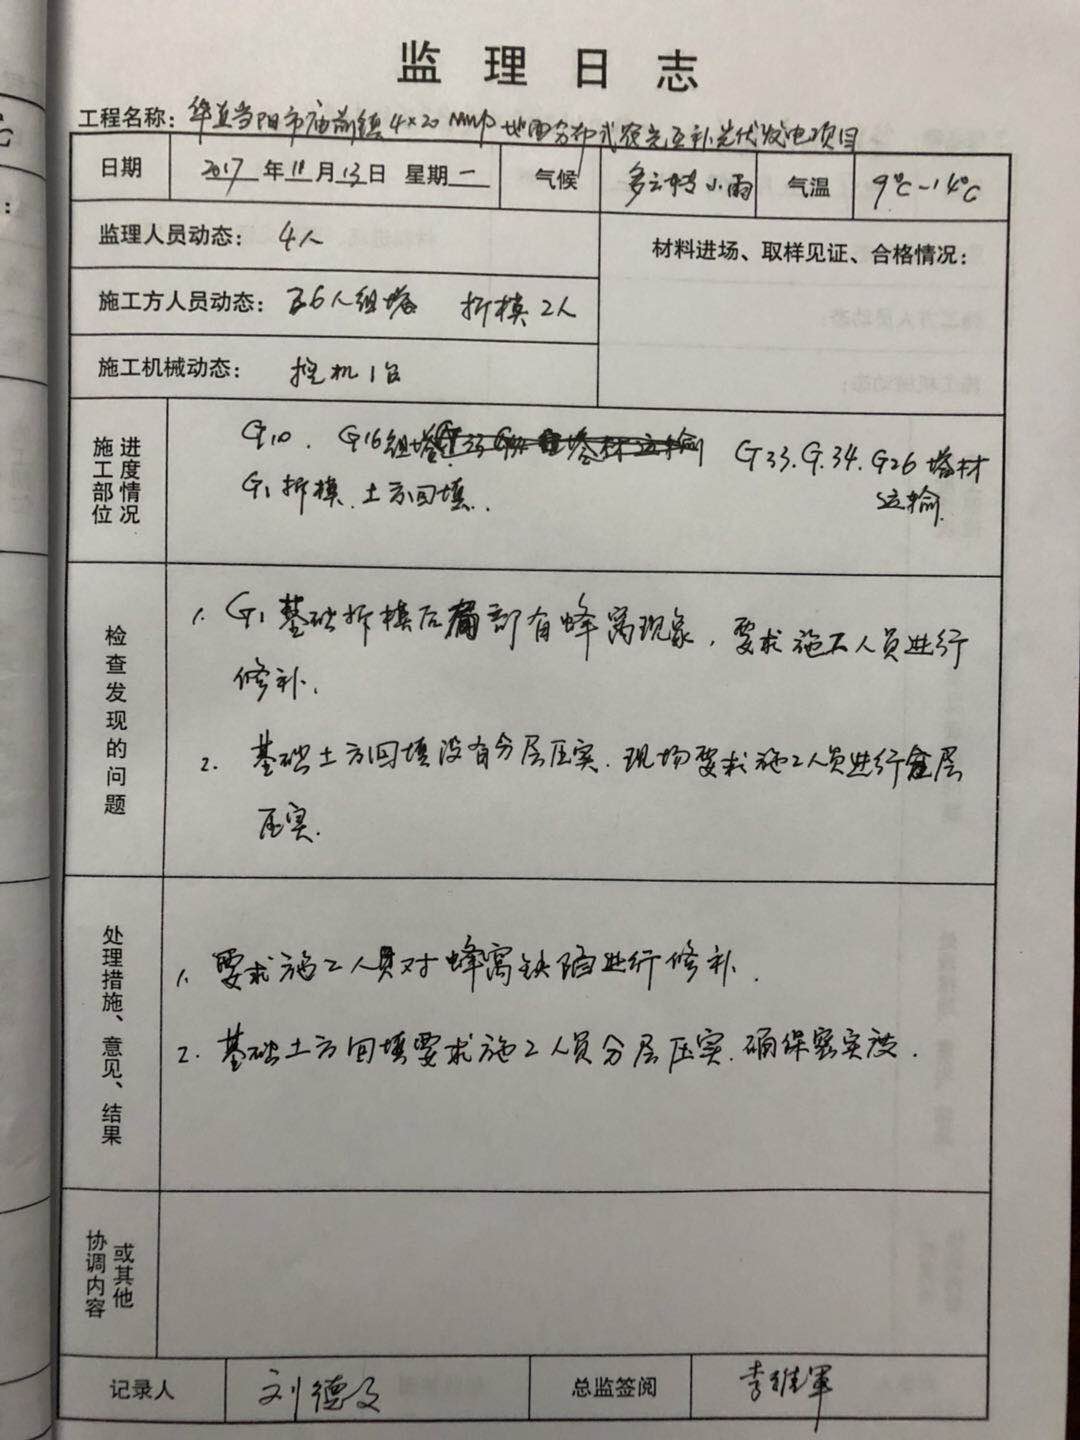 监理日志
工程名称：华立当阳市庙前镇4×20MWp地面分布式农光互补光伏发电项目
日期 2017年11月13日 星期一 气候 多云转小雨 气温 9℃-14℃
监理人员动态： 4人
材料进场、取样见证、合格情况：
施工方人员动态： 6人组塔 拆模2人
施工机械动态： 挖机1台
施工部位进度情况
G10、G16组塔 G33.G.34.G26塔材
G1拆模、土方回填. 运输
检查发现的问题
1. G1基础拆模后局部有蜂窝现象，要求施工人员进行
修补、
2. 基础土方回填没有分层压实.现场要求施工人员进行分层
压实.
处理措施、意见、结果
1. 要求施工人员对蜂窝缺陷进行修补.
2. 基础土方回填要求施工人员分层压实.确保密实度.
协调内容或其他
记录人 刘德 总监签阅 李维军